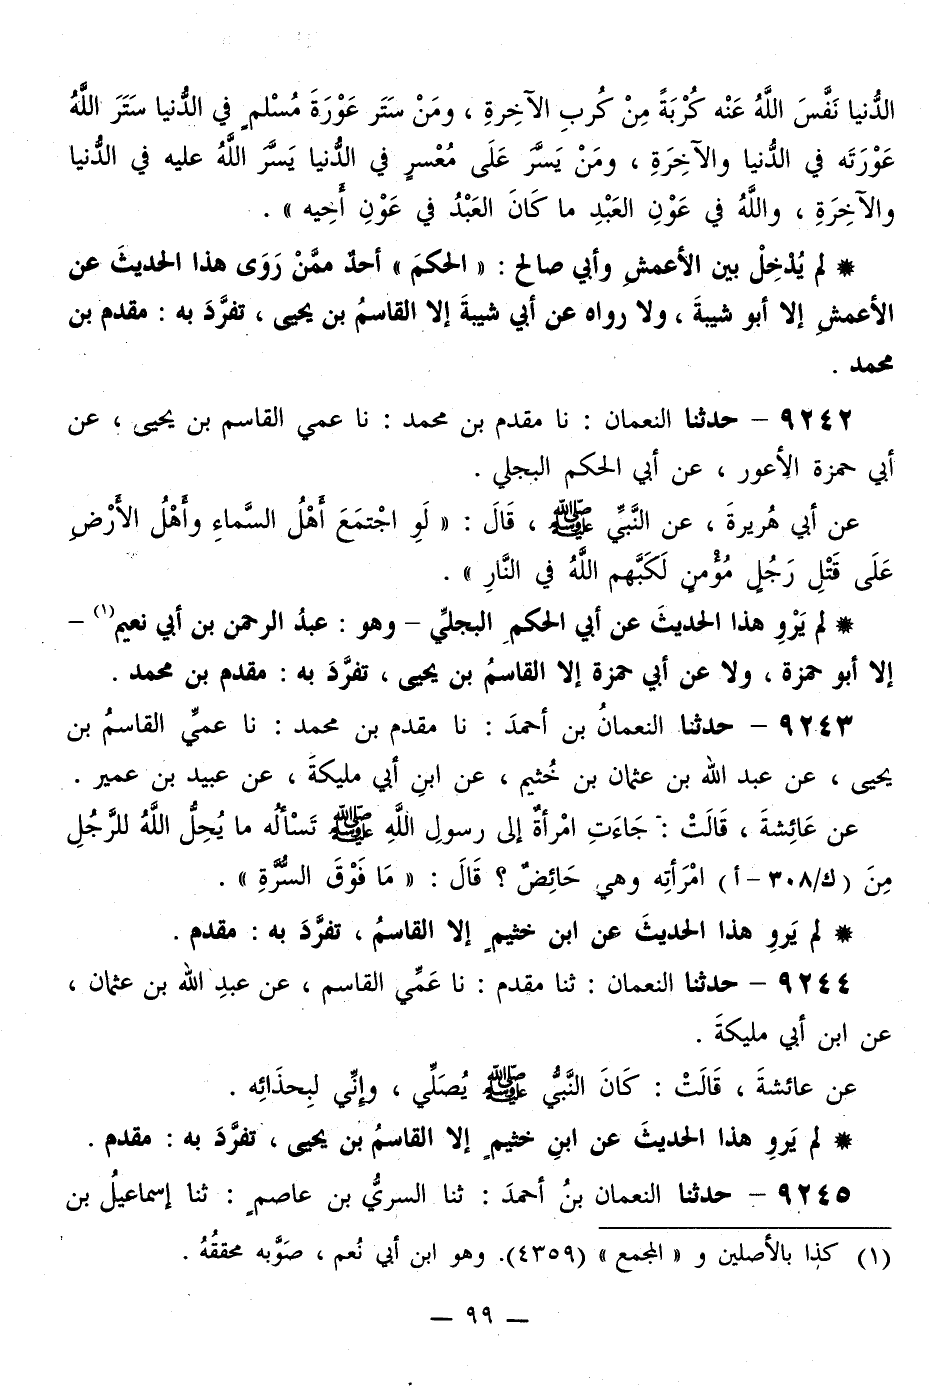 الدُّنيا نَفَّسَ اللَّهُ عَنْه كُرْبَةً مِنْ كُربِ الآخِرةِ ، ومَنْ سَتَر عَوْرَةَ مُسْلمٍ في الدُّنيا سَتَرَ اللَّهُ
عَوْرَتَه في الدُّنيا والآخِرَةِ ، ومَنْ يَسَّرَ عَلَى مُعْسرٍ في الدُّنيا يَسَّرَ اللَّهُ عليه في الدُّنيا
والآخِرَةِ ، واللَّهُ في عَوْنِ العَبْدِ ما كَانَ العَبْدُ في عَوْنِ أَخِيه » .
* لم يُدْخِلْ بين الأعمشِ وأبي صالح : « الحكمَ » أحدٌ ممَّنْ رَوَى هذا الحديثَ عن
الأعمشِ إلا أبو شيبةَ ، ولا رواه عن أبي شيبةَ إلا القاسمُ بن يحيى ، تفرَّدَ به : مقدم بن
محمد .
٩٢٤٢ – حدثنا النعمان : نا مقدم بن محمد : نا عمي القاسم بن يحيى ، عن
أبي حمزة الأعور ، عن أبي الحكم البجلي .
عن أبي هُريرةَ ، عن النَّبيِّ ﷺ ، قَالَ : « لَوِ اجْتمَعَ أَهْلُ السَّماءِ وأَهْلُ الأَرْضِ
عَلَى قَتْلِ رَجُلٍ مُؤْمنٍ لَكَبَّهم اللَّهُ في النَّارِ » .
* لم يَرْوِ هذا الحديثَ عن أبي الحكمِ البجليِّ – وهو : عبدُ الرحمن بن أبي نعيم(١) –
إلا أبو حمزة ، ولا عن أبي حمزة إلا القاسمُ بن يحيى ، تفرَّدَ به : مقدم بن محمد .
٩٢٤٣ – حدثنا النعمانُ بن أحمدَ : نا مقدم بن محمد : نا عميِّ القاسمُ بن
يحيى ، عن عبد الله بن عثمان بن خُثيم ، عن ابنِ أبي مليكةَ ، عن عبيد بن عمير .
عن عَائِشةَ ، قَالَتْ : جَاءَتِ امْرأةٌ إلى رسولِ اللَّهِ ﷺ تَسْألُه ما يُحِلُّ اللَّهُ للرَّجُلِ
مِنَ (ك/٣٠٨-أ) امْرَأتِه وهي حَائِضٌ ؟ قَالَ : « مَا فَوْقَ السُّرَّةِ » .
* لم يَروِ هذا الحديثَ عن ابن خثيمٍ إلا القاسمُ ، تفرَّدَ به : مقدم .
٩٢٤٤ – حدثنا النعمان : ثنا مقدم : نا عَمِّي القاسم ، عن عبدِ الله بن عثمان ،
عن ابن أبي مليكةَ .
عن عائشةَ ، قَالَتْ : كَانَ النَّبيُّ ﷺ يُصَلِّي ، وإنِّي لبِحذَائِه .
* لم يَروِ هذا الحديثَ عن ابنِ خثيمٍ إلا القاسمُ بن يحيى ، تفرَّدَ به : مقدم .
٩٢٤٥ – حدثنا النعمان بنُ أحمدَ : ثنا السريُّ بن عاصمٍ : ثنا إسماعيلُ بن
(١) كذا بالأصلين و « المجمع » (٤٣٥٩). وهو ابن أبي نُعم ، صَوَّبه محققُهُ .
– ٩٩ –